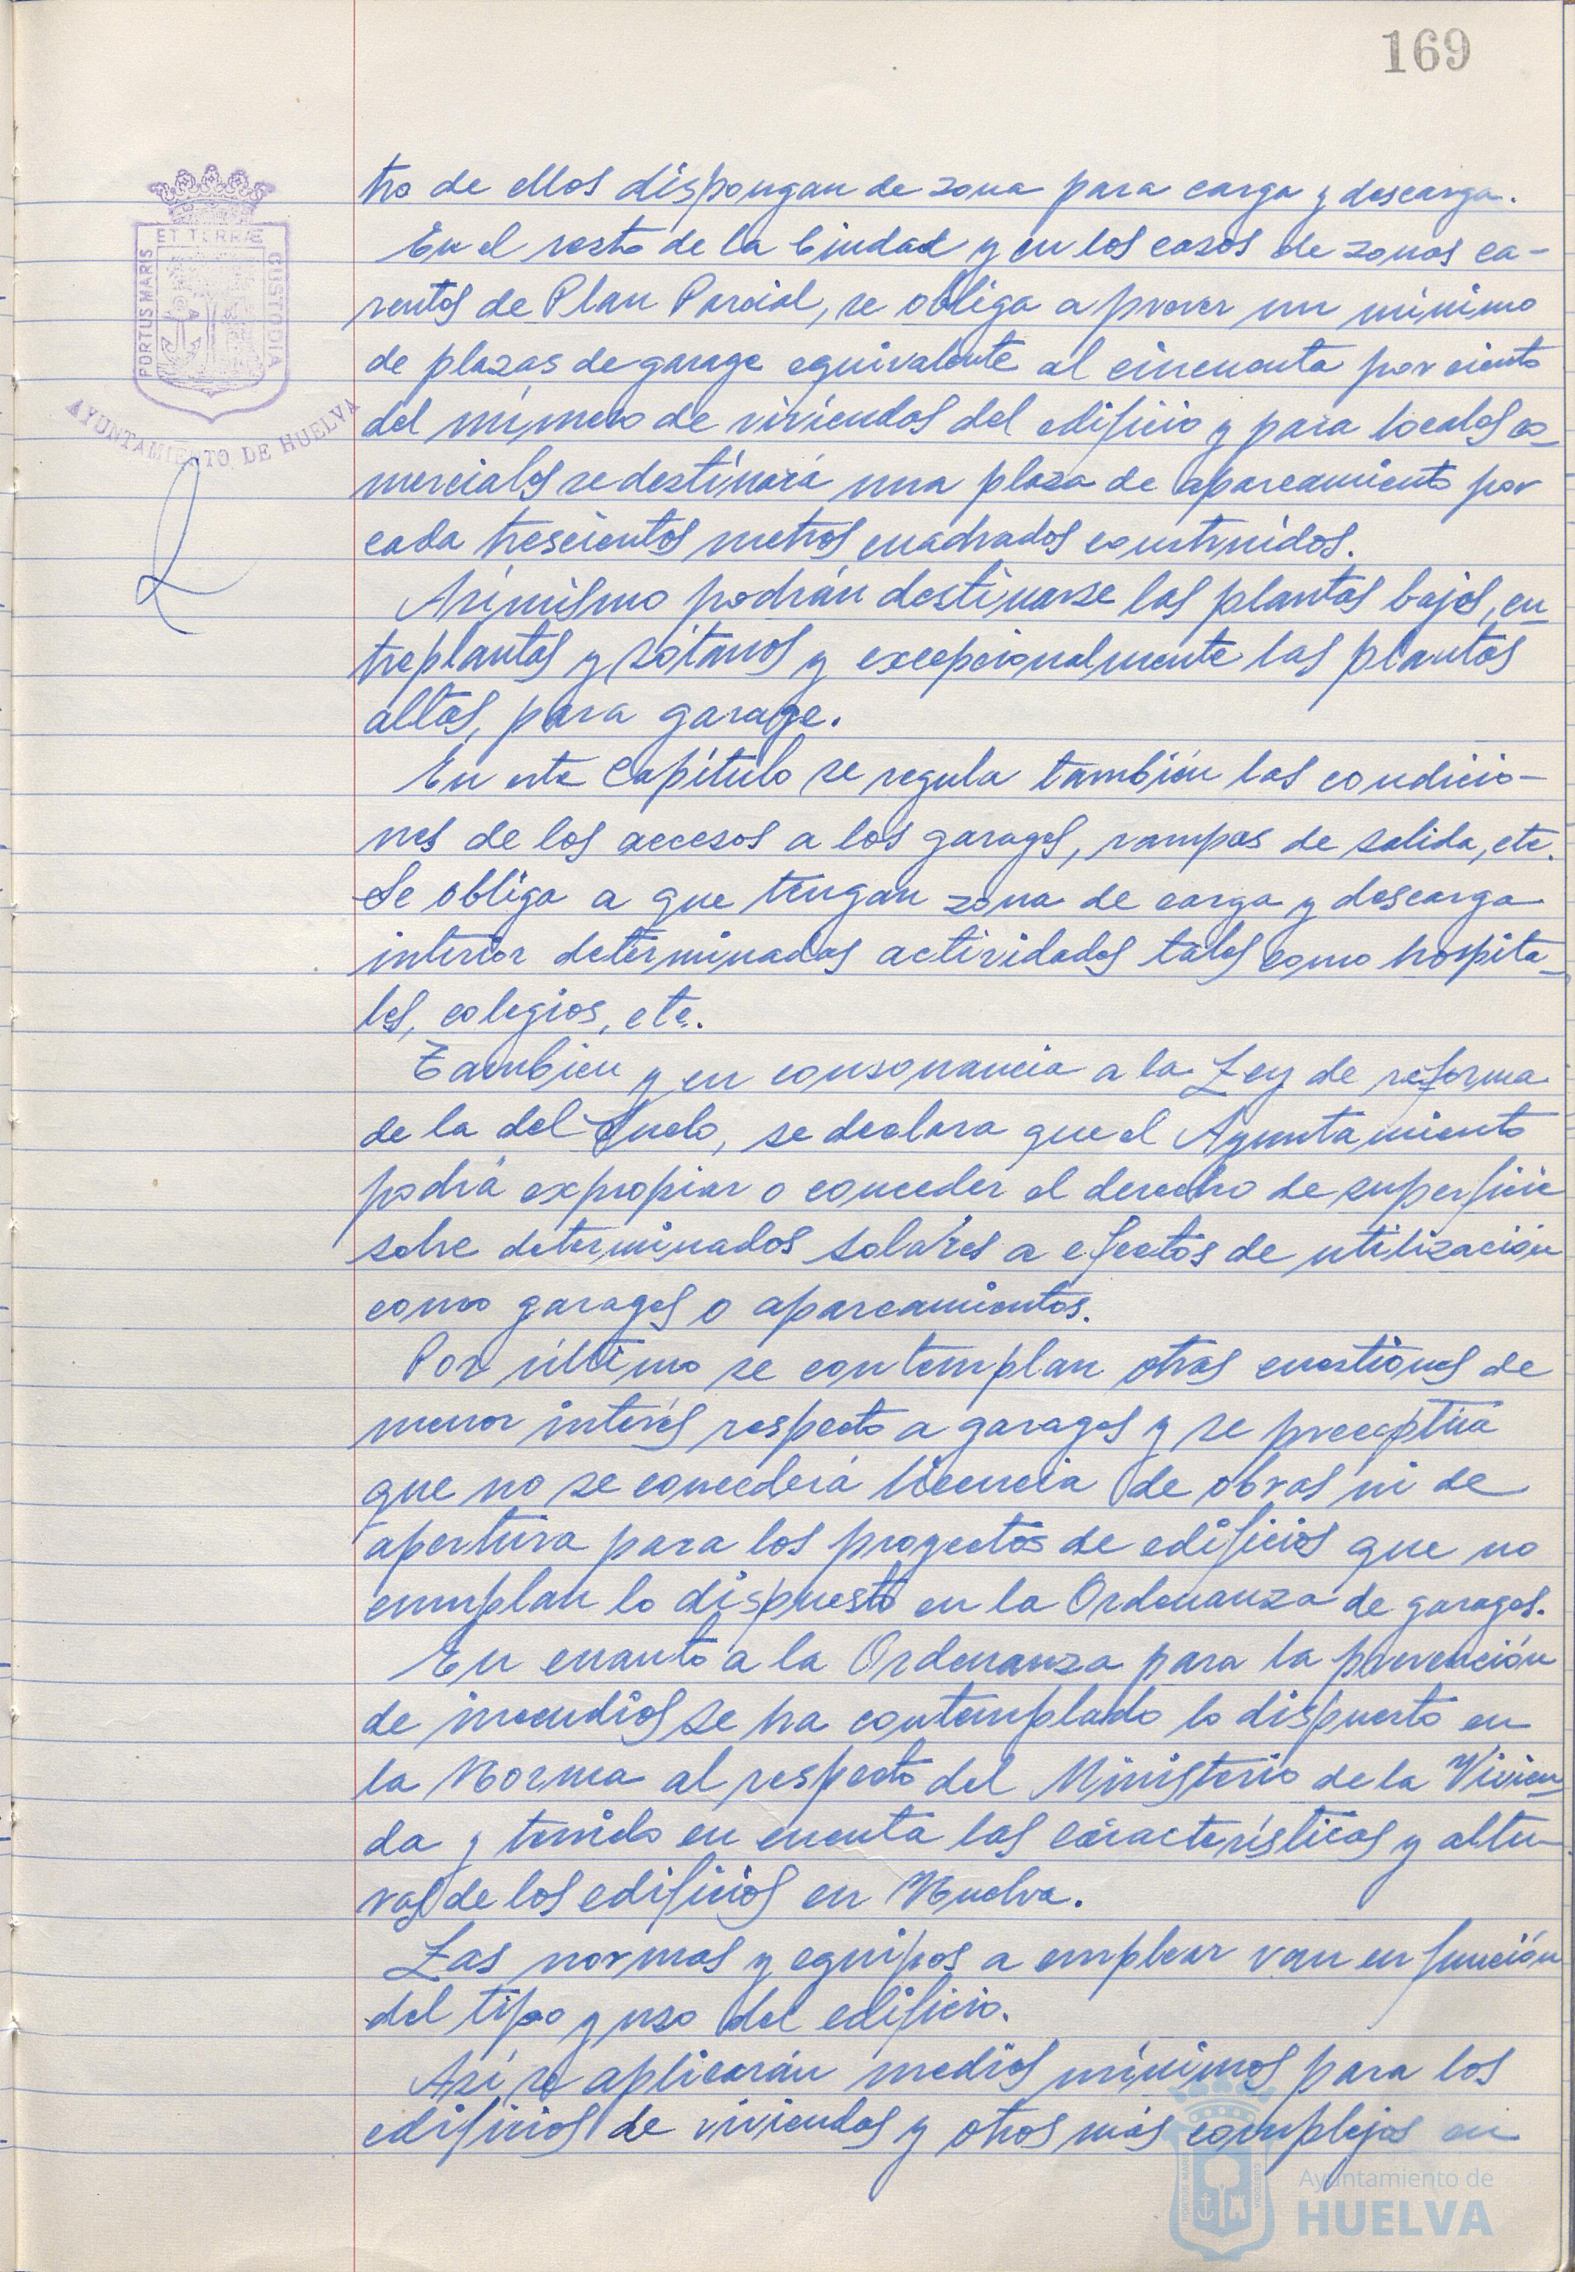 169
PORTUS MARIS
ET TERRÆ
CUSTODIA
AYUNTAMIENTO DE HUELVA
tro de ellos dispongan de zona para carga y descarga.
En el resto de la Ciudad y en los casos de zonas ca-
rentes de Plan Parcial, se obliga a prever un mínimo
de plazas de garage equivalente al cincuenta por ciento
del número de viviendas del edificio y para locales co-
merciales se destinará una plaza de aparcamiento por
cada trescientos metros cuadrados construidos.
Asimismo podrán destinarse las plantas bajas, en-
treplantas y sótanos y excepcionalmente las plantas
altas, para garage.
En este Capítulo se regula también las condicio-
nes de los accesos a los garages, rampas de salida, etc.
Se obliga a que tengan zona de carga y descarga
interior determinadas actividades tales como hospita-
les, colegios, etc.
Tambien y en consonancia a la Ley de reforma
de la del Suelo, se declara que el Ayuntamiento
podrá expropiar o conceder el derecho de superficie
sobre determinados solares a efectos de utilización
como garages o aparcamientos.
Por último se contemplan otras cuestiones de
menor interés respecto a garages y se preceptúa
que no se concederá licencia de obras ni de
apertura para los proyectos de edificios que no
cumplan lo dispuesto en la Ordenanza de garages.
En cuanto a la Ordenanza para la prevención
de incendios se ha contemplado lo dispuesto en
la Norma al respecto del Ministerio de la Vivien-
da y tenido en cuenta las características y altu-
ras de los edificios en Huelva.
Las normas y equipos a emplear van en función
del tipo y uso del edificio.
Así se aplicarán medios mínimos para los
edificios de viviendas y otros más complejos en
Ayuntamiento de
HUELVA